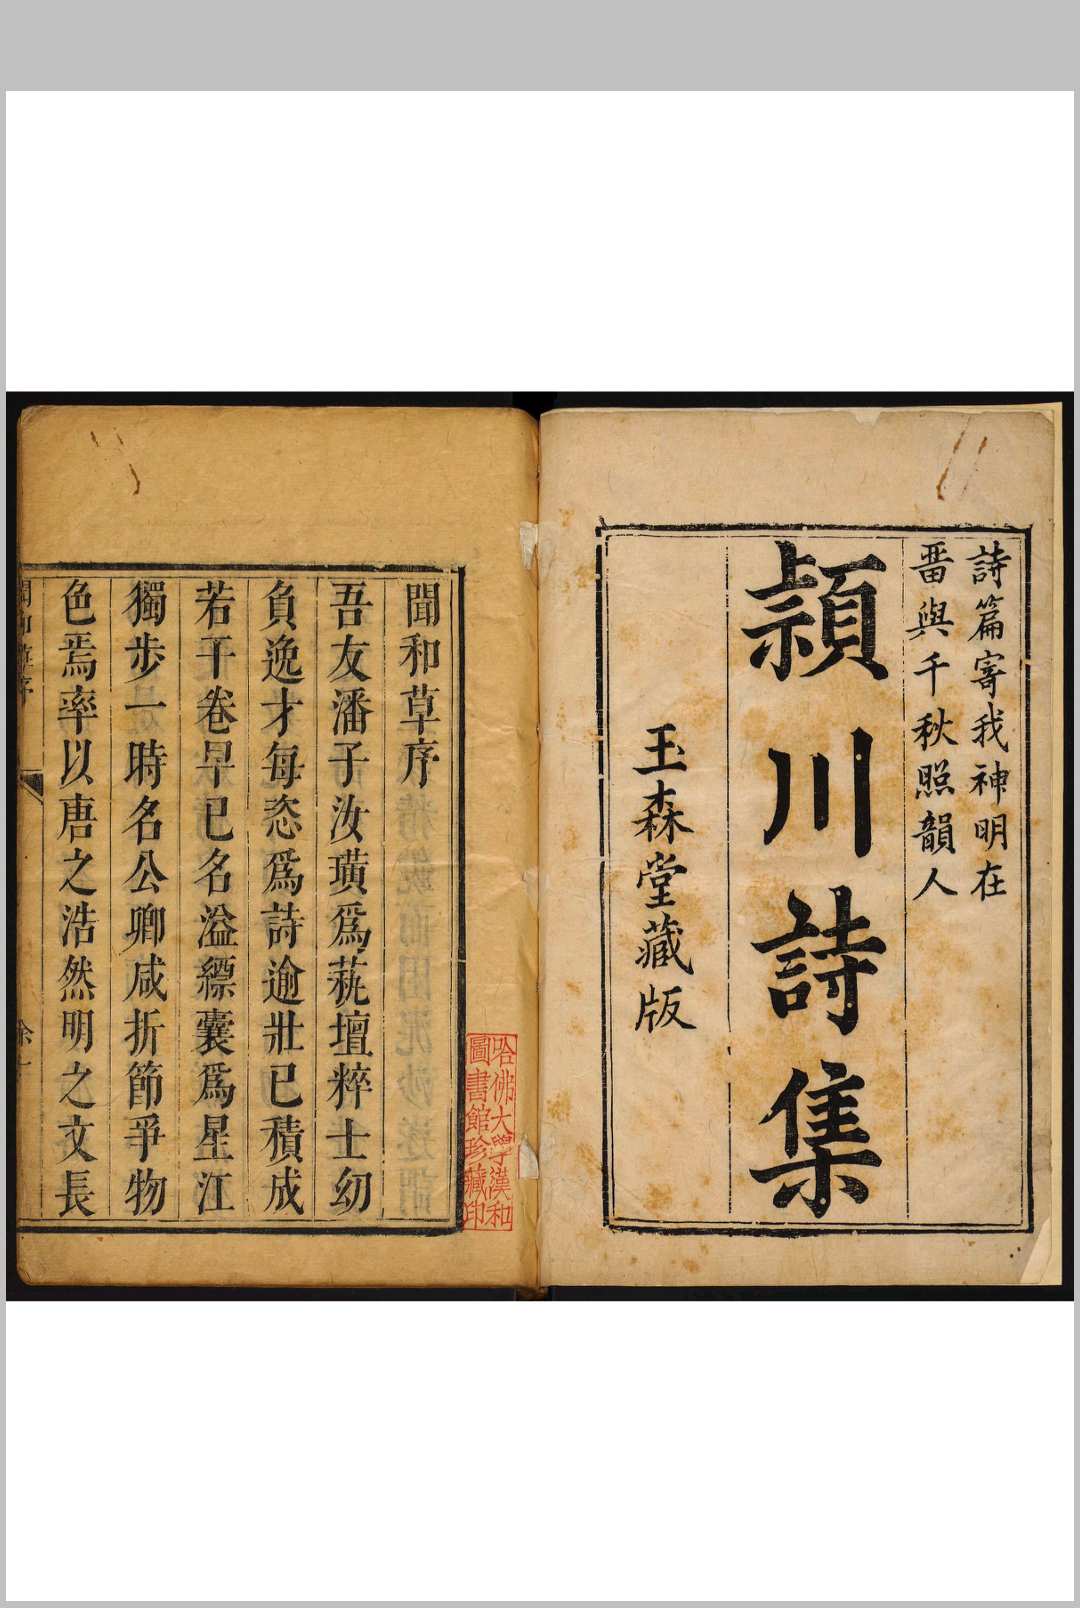 詩篇寄我神明在
畱與千秋照韻人
頴川詩集
玉森堂藏版
哈佛大學漢和
圖書館珍藏印
聞和草序
吾友潘子汝璜爲蓺壇粹士幼
負逸才每恣爲詩逾壯已積成
若干卷早已名溢縹囊爲星江
獨步一時名公卿咸折節爭物
色焉率以唐之浩然明之文長